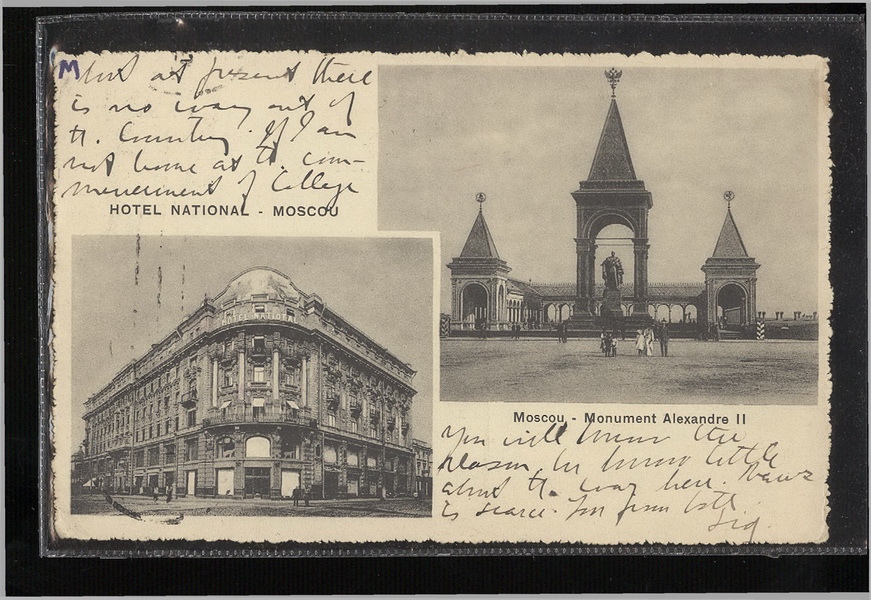 M
but at present there
is no way out of
th. Country. If I am
not home at th. com-
mencement of College
HOTEL NATIONAL - MOSCOU
HOTEL NATIONAL
Moscou - Monument Alexandre II
You will know the
reason, we know little
about th. way here. News
is scarce. from both